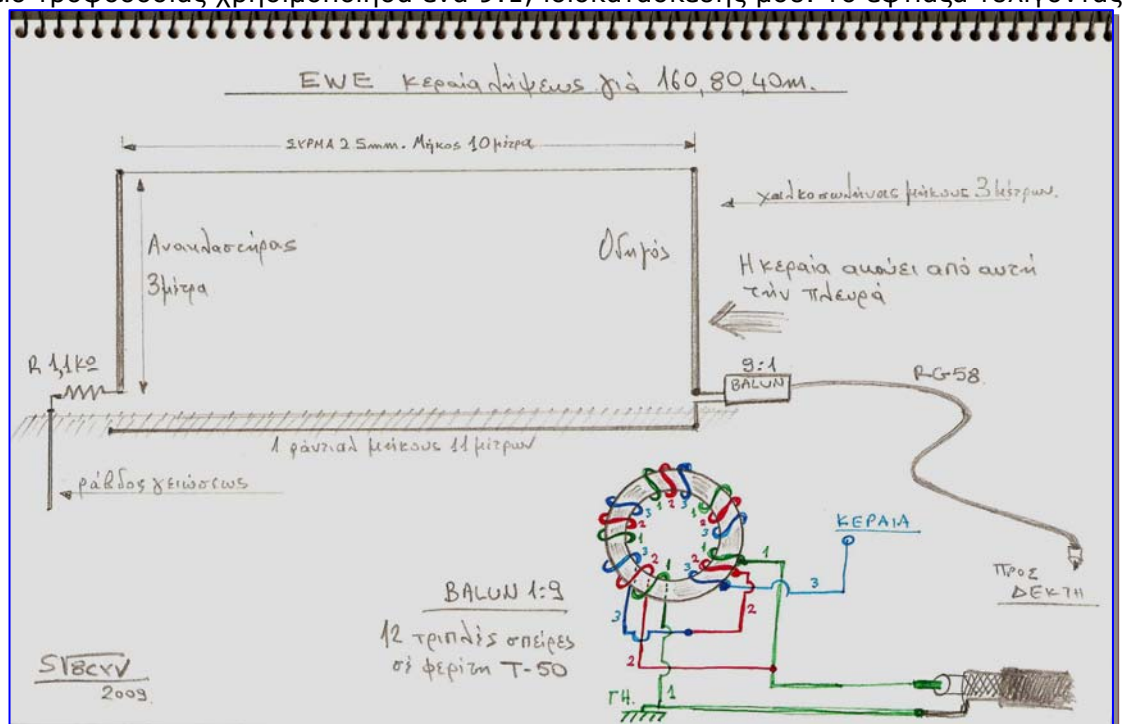 τροφοδοσίας χρησιμοποίησα ένα 9:1, ιδιοκατασκευής μου. Το έφτιαξα τυλίγοντας
EWE κεραία λήψεως γιά 160, 80, 40m.
ΣΥΡΜΑ 2.5mm. Μήκος 10 μέτρα
χαλκοσωλήνας μήκους 3 μέτρων.
Ανακλαστήρας
3 μέτρα
Οδηγός
Η κεραία ακούει από αυτή
τήν πλευρά
R 1,1 ΚΩ
9:1
BALUN
RG-58
1 ράντιαλ μήκους 11 μέτρων
ράβδος γειώσεως
1 2 3
3 2 1
1 2 3
3 2 1
1 2 3
ΚΕΡΑΙΑ
1
3
2
3
2
1
ΠΡΟΣ
ΔΕΚΤΗ
BALUN 1:9
12 τριπλές σπείρες
σέ φερίτη T-50
ΓΗ.
SV8CYV
2009